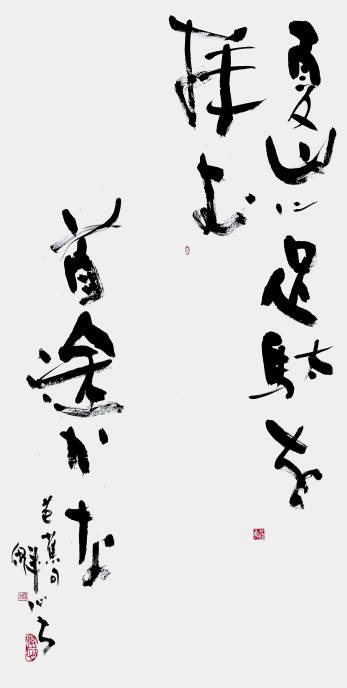 夏山に足駄を
拝む
首途かな
芭蕉句